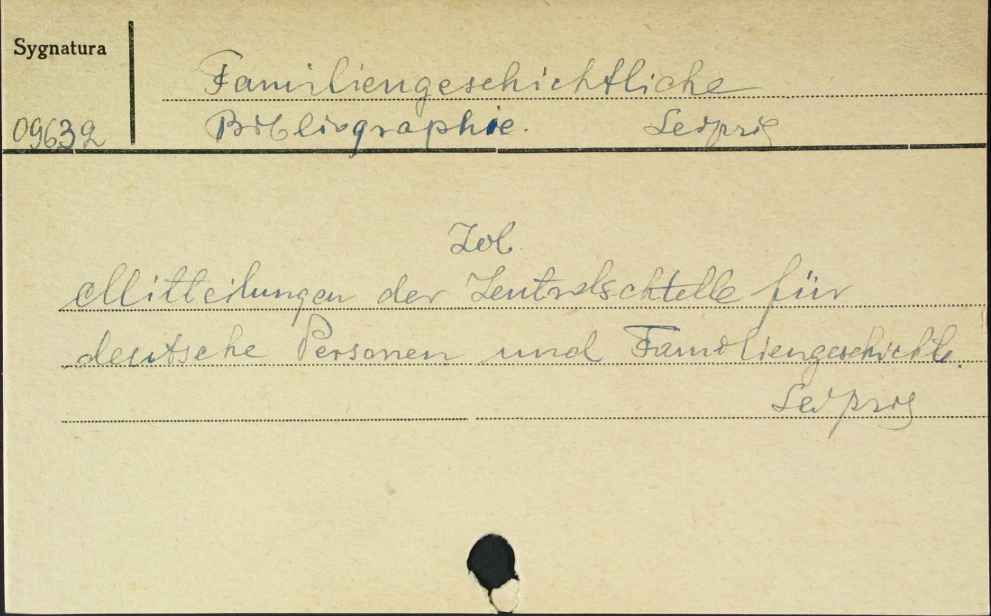 Sygnatura
Familiengeschichtliche
09632 Bibliographie. Leipzig
Zob
Mitteilungen der Zentralschtelle für
deutsche Personen und Familiengeschichte.
Leipzig